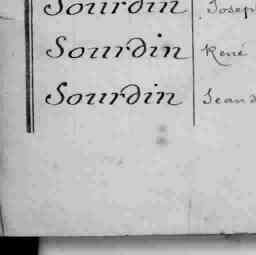 Sourdin Joseph
Sourdin René
Sourdin Jean